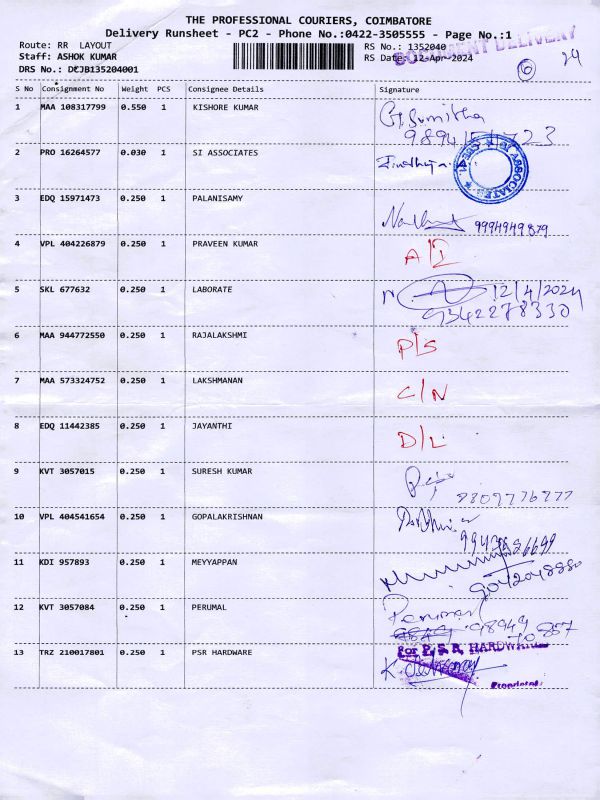 THE PROFESSIONAL COURIERS, COIMBATORE
Delivery Runsheet - PC2 - Phone No.:0422-3505555 - Page No.:1
Route: RR LAYOUT
Staff: ASHOK KUMAR
DRS No.: DCJB135204001
RS No.: 1352040
RS Date: 12-Apr-2024
DOCUMENT DELIVERY
6
24
S No Consignment No Weight PCS Consignee Details Signature
1 MAA 108317799 0.550 1 KISHORE KUMAR
G. Sumitha
2 PRO 16264577 0.030 1 SI ASSOCIATES
SI ASSOCIATES
3 EDQ 15971473 0.250 1 PALANISAMY
9994949879
4 VPL 404226879 0.250 1 PRAVEEN KUMAR A/I
5 SKL 677632 0.250 1 LABORATE
12/4/2024
9342278330
6 MAA 944772550 0.250 1 RAJALAKSHMI P/S
7 MAA 573324752 0.250 1 LAKSHMANAN C/N
8 EDQ 11442385 0.250 1 JAYANTHI D/L
9 KVT 3057015 0.250 1 SURESH KUMAR
10 VPL 404541654 0.250 1 GOPALAKRISHNAN
11 KDI 957893 0.250 1 MEYYAPPAN
12 KVT 3057084 0.250 1 PERUMAL
Perumal
98949
70857
13 TRZ 210017801 0.250 1 PSR HARDWARE
For P. S. R. HARDWARE
Proprietor